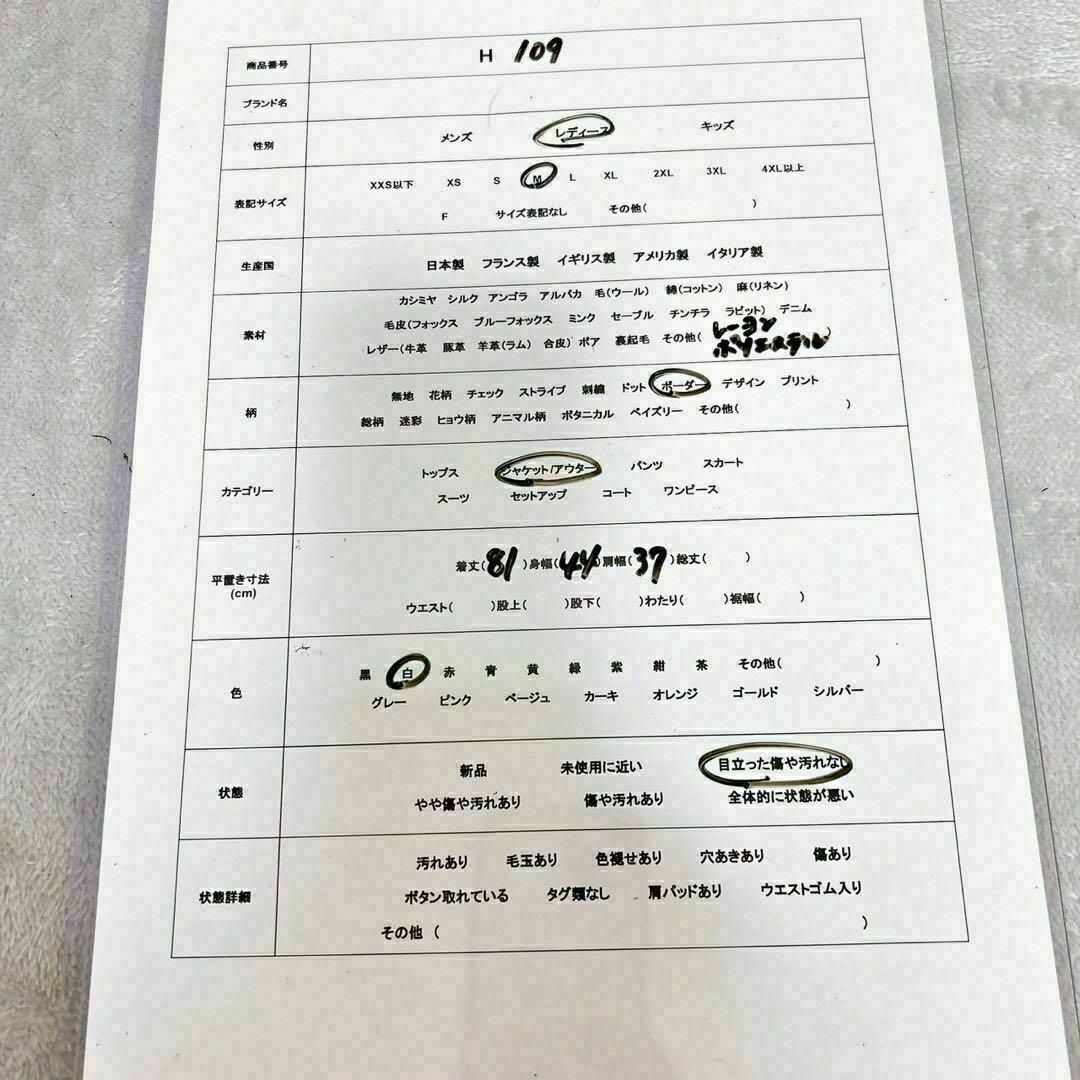 商品番号 H 109
ブランド名
性別 メンズ レディース キッズ
表記サイズ XXS以下 XS S M L XL 2XL 3XL 4XL以上
F サイズ表記なし その他( )
生産国 日本製 フランス製 イギリス製 アメリカ製 イタリア製
カシミヤ シルク アンゴラ アルパカ 毛(ウール) 綿(コットン) 麻(リネン)
毛皮(フォックス ブルーフォックス ミンク セーブル チンチラ ラビット) デニム
素材 レザー(牛革 豚革 羊革(ラム) 合皮) ボア 裏起毛 その他( レーヨン
ポリエステル
柄 無地 花柄 チェック ストライプ 刺繍 ドット ボーダー デザイン プリント
総柄 迷彩 ヒョウ柄 アニマル柄 ボタニカル ペイズリー その他( )
カテゴリー トップス ジャケット/アウター パンツ スカート
スーツ セットアップ コート ワンピース
平置き寸法 着丈(81)身幅(44)肩幅(37)総丈( )
(cm) ウエスト( )股上( )股下( )わたり( )裾幅( )
色 黒 白 赤 青 黄 緑 紫 紺 茶 その他( )
グレー ピンク ベージュ カーキ オレンジ ゴールド シルバー
状態 新品 未使用に近い 目立った傷や汚れなし
やや傷や汚れあり 傷や汚れあり 全体的に状態が悪い
状態詳細 汚れあり 毛玉あり 色褪せあり 穴あきあり 傷あり
ボタン取れている タグ類なし 肩パッドあり ウエストゴム入り
その他 ( )